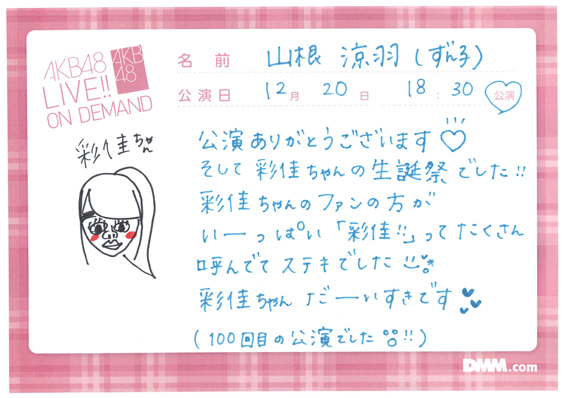 AKB48
LIVE!!
ON DEMAND
AKB
48
名前 山根 涼羽(ずん子)
公演日 12月 20日 18:30 公演
彩佳ちゃん
公演ありがとうございます♡
そして彩佳ちゃんの生誕祭でした!!
彩佳ちゃんのファンの方が
いーっぱい「彩佳!!」ってたくさん
呼んでてステキでした
彩佳ちゃん だーいすきです
(100回目の公演でした!!)
DMM.com